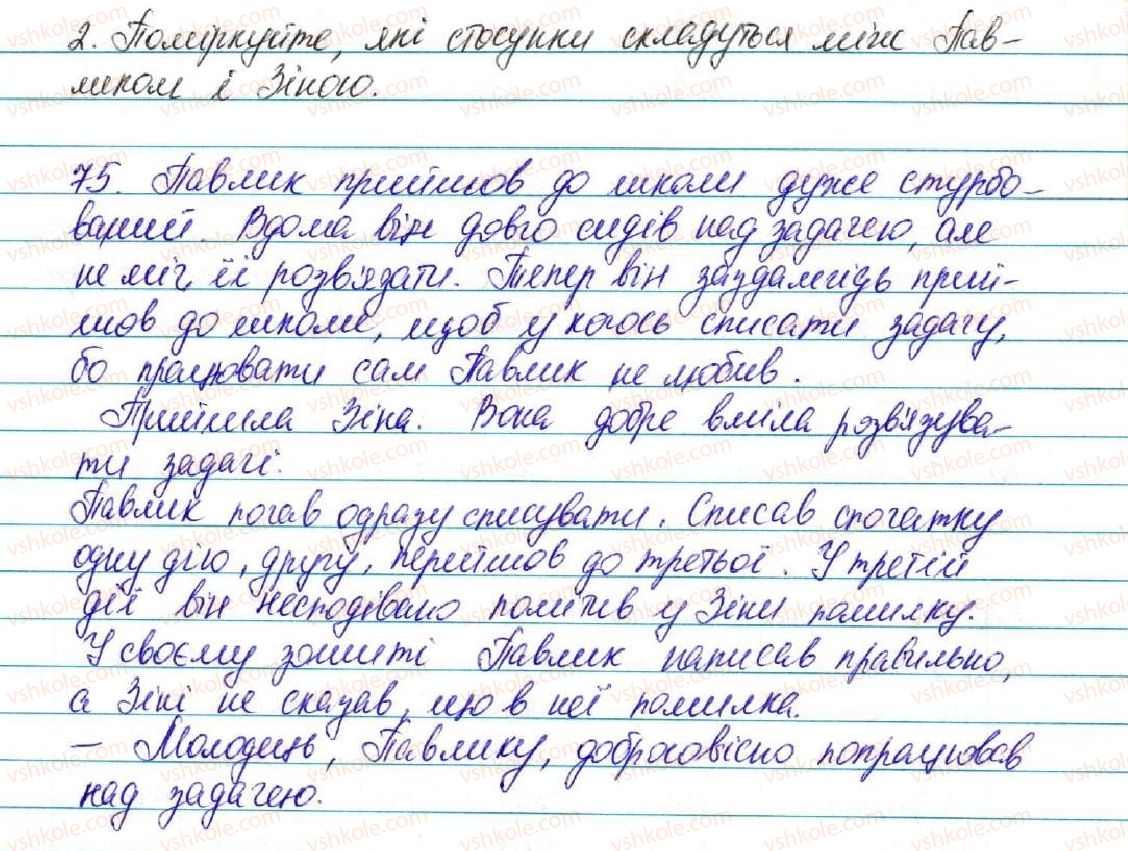 2. Поміркуйте, які стосунки складуться між Пав-
ликом і Зіною.
75. Павлик прийшов до школи дуже стурбо-
ваний. Вдома він довго сидів над задачею, але
не міг її розв'язати. Тепер він заздалегідь прий-
шов до школи, щоб у когось списати задачу,
бо працювати сам Павлик не любив.
Прийшла Зіна. Вона добре вміла розв'язува-
ти задачі.
Павлик почав одразу списувати. Списав спочатку
одну дію, другу, перейшов до третьої. У третій
дії він несподівано помітив у Зіни помилку.
У своєму зошиті Павлик написав правильно,
а Зіні не сказав, що в неї помилка.
— Молодець, Павлику, добросовісно попрацював
над задачею.